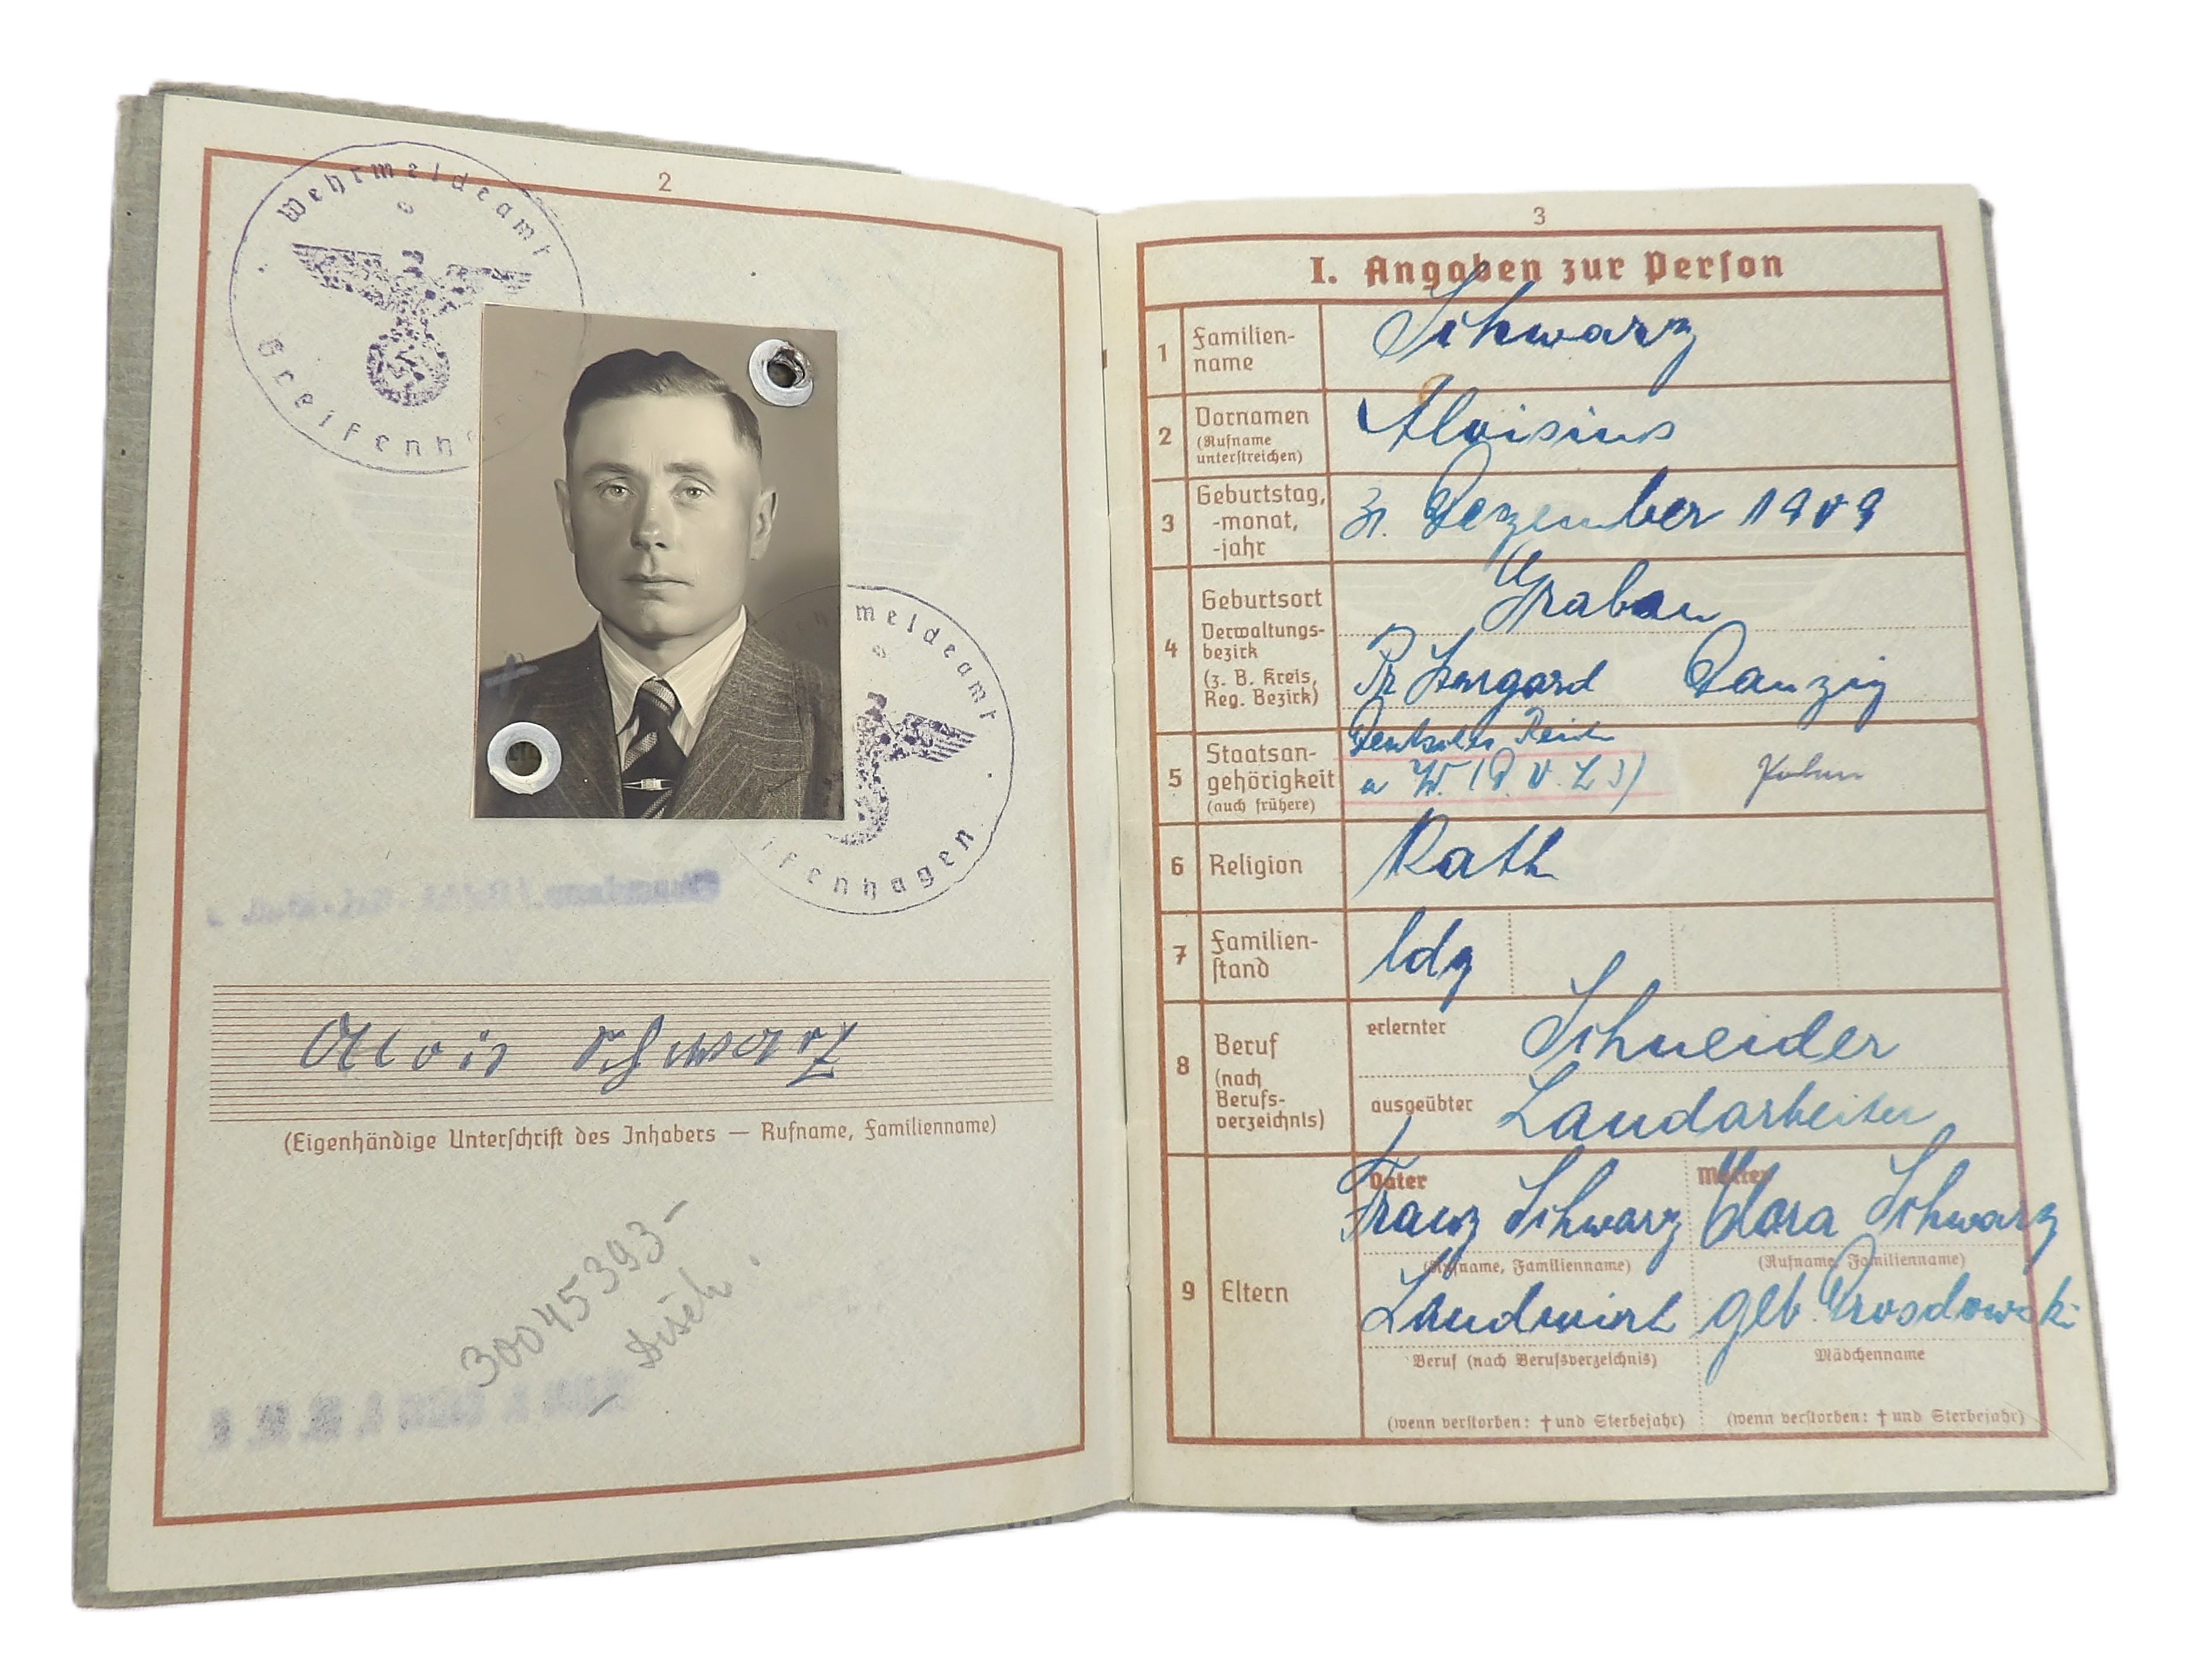 2
Wehrmeldeamt
Greifenh
meldeamt
ifenhagen
Alois Schwarz
(Eigenhändige Unterschrift des Inhabers — Rufname, Familienname)
30045393-
3
I. Angaben zur Person
1 Familien-
name
Schwarz
2 Vornamen
(Rufname
unterstreichen)
Aloisius
3 Geburtstag,
-monat,
-jahr
31. Dezember 1909
4 Geburtsort
Verwaltungs-
bezirk
(z. B. Kreis,
Reg. Bezirk)
Grabau
Pr Stargard Danzig
5 Staatsan-
gehörigkeit
(auch frühere)
Deutsches Reich
a W. (D. V. L 3)
Polen
6 Religion
Kath
7 Familien-
stand
ldg
8 Beruf
(nach
Berufs-
verzeichnis)
erlernter Schneider
ausgeübter Landarbeiter
9 Eltern
Vater
Franz Schwarz
(Rufname, Familienname)
Landwirt
Beruf (nach Berufsverzeichnis)
(wenn verstorben: † und Sterbejahr)
Mutter
Klara Schwarz
(Rufname, Familienname)
geb.
Mädchenname
(wenn verstorben: † und Sterbejahr)